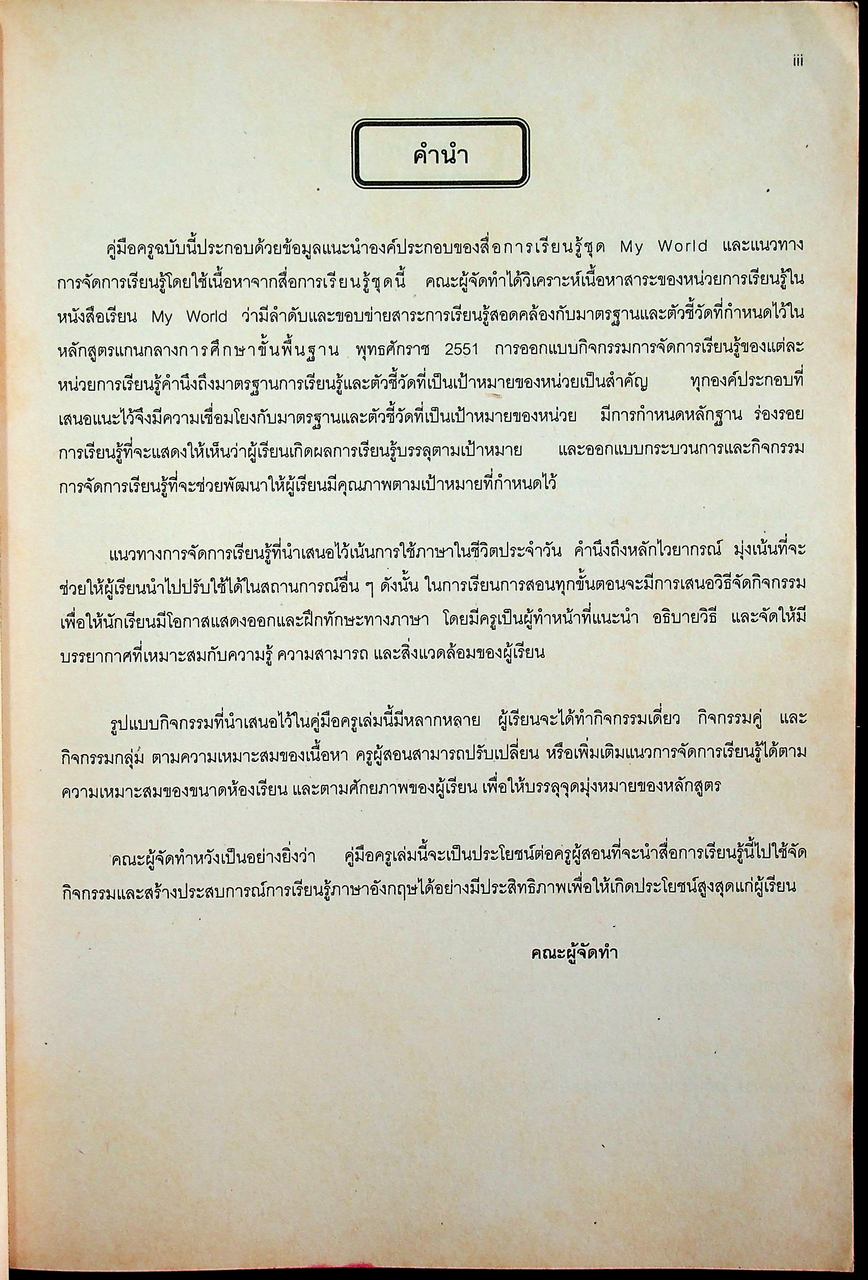 iii
คำนำ
คู่มือครูฉบับนี้ประกอบด้วยข้อมูลแนะนำองค์ประกอบของสื่อการเรียนรู้ชุด My World และแนวทาง
การจัดการเรียนรู้โดยใช้เนื้อหาจากสื่อการเรียนรู้ชุดนี้ คณะผู้จัดทำได้วิเคราะห์เนื้อหาสาระของหน่วยการเรียนรู้ใน
หนังสือเรียน My World ว่ามีลำดับและขอบข่ายสาระการเรียนรู้สอดคล้องกับมาตรฐานและตัวชี้วัดที่กำหนดไว้ใน
หลักสูตรแกนกลางการศึกษาขั้นพื้นฐาน พุทธศักราช 2551 การออกแบบกิจกรรมการจัดการเรียนรู้ของแต่ละ
หน่วยการเรียนรู้คำนึงถึงมาตรฐานการเรียนรู้และตัวชี้วัดที่เป็นเป้าหมายของหน่วยเป็นสำคัญ ทุกองค์ประกอบที่
เสนอแนะไว้จึงมีความเชื่อมโยงกับมาตรฐานและตัวชี้วัดที่เป็นเป้าหมายของหน่วย มีการกำหนดหลักฐาน ร่องรอย
การเรียนรู้ที่จะแสดงให้เห็นว่าผู้เรียนเกิดผลการเรียนรู้บรรลุตามเป้าหมาย และออกแบบกระบวนการและกิจกรรม
การจัดการเรียนรู้ที่จะช่วยพัฒนาให้ผู้เรียนมีคุณภาพตามเป้าหมายที่กำหนดไว้
แนวทางการจัดการเรียนรู้ที่นำเสนอไว้เน้นการใช้ภาษาในชีวิตประจำวัน คำนึงถึงหลักไวยากรณ์ มุ่งเน้นที่จะ
ช่วยให้ผู้เรียนนำไปปรับใช้ได้ในสถานการณ์อื่น ๆ ดังนั้น ในการเรียนการสอนทุกขั้นตอนจะมีการเสนอวิธีจัดกิจกรรม
เพื่อให้นักเรียนมีโอกาสแสดงออกและฝึกทักษะทางภาษา โดยมีครูเป็นผู้ทำหน้าที่แนะนำ อธิบายวิธี และจัดให้มี
บรรยากาศที่เหมาะสมกับความรู้ ความสามารถ และสิ่งแวดล้อมของผู้เรียน
รูปแบบกิจกรรมที่นำเสนอไว้ในคู่มือครูเล่มนี้มีหลากหลาย ผู้เรียนจะได้ทำกิจกรรมเดี่ยว กิจกรรมคู่ และ
กิจกรรมกลุ่ม ตามความเหมาะสมของเนื้อหา ครูผู้สอนสามารถปรับเปลี่ยน หรือเพิ่มเติมแนวการจัดการเรียนรู้ได้ตาม
ความเหมาะสมของขนาดห้องเรียน และตามศักยภาพของผู้เรียน เพื่อให้บรรลุจุดมุ่งหมายของหลักสูตร
คณะผู้จัดทำหวังเป็นอย่างยิ่งว่า คู่มือครูเล่มนี้จะเป็นประโยชน์ต่อครูผู้สอนที่จะนำสื่อการเรียนรู้นี้ไปใช้จัด
กิจกรรมและสร้างประสบการณ์การเรียนรู้ภาษาอังกฤษได้อย่างมีประสิทธิภาพเพื่อให้เกิดประโยชน์สูงสุดแก่ผู้เรียน
คณะผู้จัดทำ